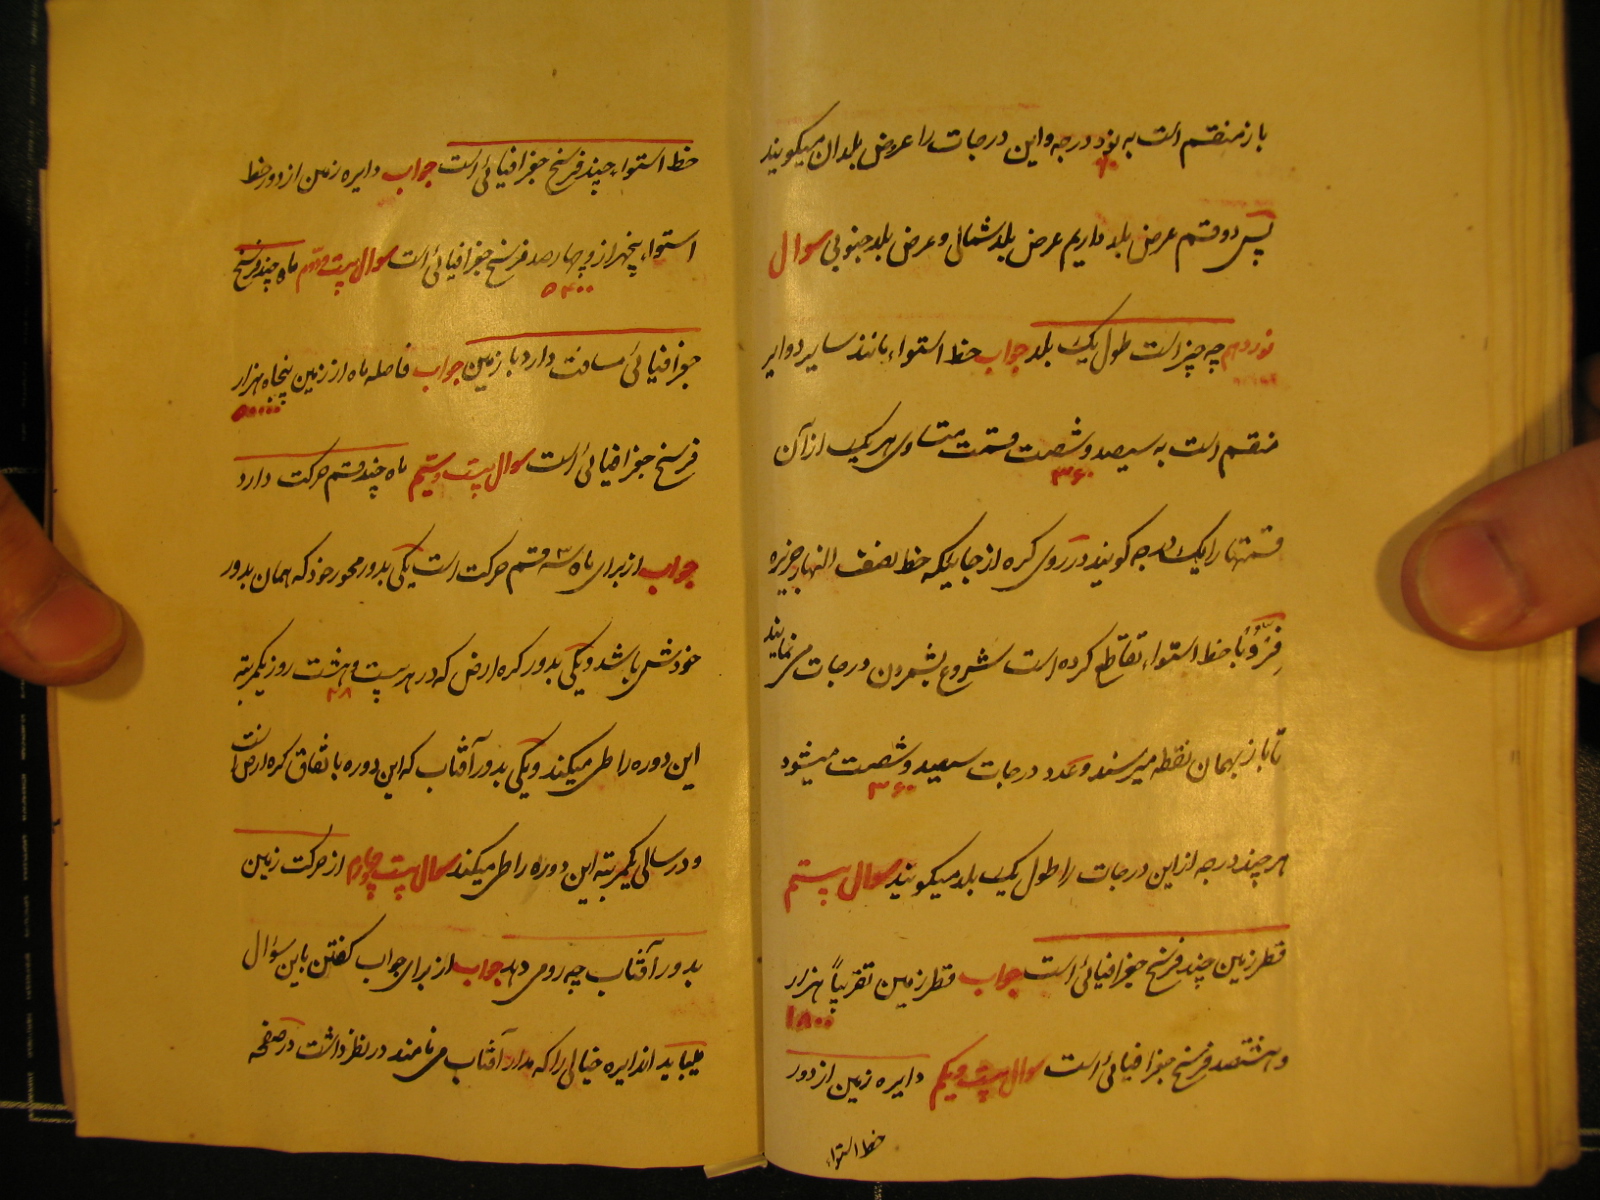 باز منقسم است به نود درجه و این درجات را عروض بلدان میگویند
۹۰
پس دو قسم عرض بلد داریم عرض بلد شمالی و عرض بلد جنوبی سوال
نوزدهم چه چیز است طول یک بلد جواب خط استواء مانند سایر دوایر
منقسم است به سیصد و شصت قسمت متساوی هر یک از آن
۳۶۰
قسمتها را یک درجه گویند در روی کره از جائیکه خط نصف النهار جزیره
فرّو با خط استواء تقاطع کرده است شروع بشمردن درجات می نمایند
تا باز بهمان نقطه میرسند و عدد درجات سیصد و شصت میشود
۳۶۰
هر چند درجه از این درجات را طول یک بلد میگویند سوال بیستم
قطر زمین چند فرسخ جغرافیائی است جواب قطر زمین تقریباً هزار
۱۸۰۰
و هشتصد فرسخ جغرافیائی است سوال بیست و یکم دایره زمین از دور
خط استواء
خط استواء چند فرسخ جغرافیائی است جواب دایره زمین از دور خط
استواء پنجهزار و چهار صد فرسخ جغرافیائی است سوال بیست و دوّم ماه چند فرسخ
۵۴۰۰
جغرافیائی مسافت دارد با زمین جواب فاصله ماه از زمین پنجاه هزار
۵۰۰۰۰
فرسخ جغرافیائی است سوال بیست و سیّم ماه چند قسم حرکت دارد
جواب از برای ماه سه قسم حرکت است یکی بدور محور خود که همان بدور
۳
خودش باشد و یکی بدور کره ارض که در هر بیست و هشت روز یکمرتبه
۲۸
این دوره را طی میکند و یکی بدور آفتاب که این دوره باتفاق کره ارض است
و در سالی یکمرتبه این دوره را طی میکند سوال بیست و چهارم از حرکت زمین
بدور آفتاب چه رو می دهد جواب از برای جواب گفتن باین سؤال
میباید اندایره خیالی را که مدار آفتاب می نامند در نظر داشت در صفحه